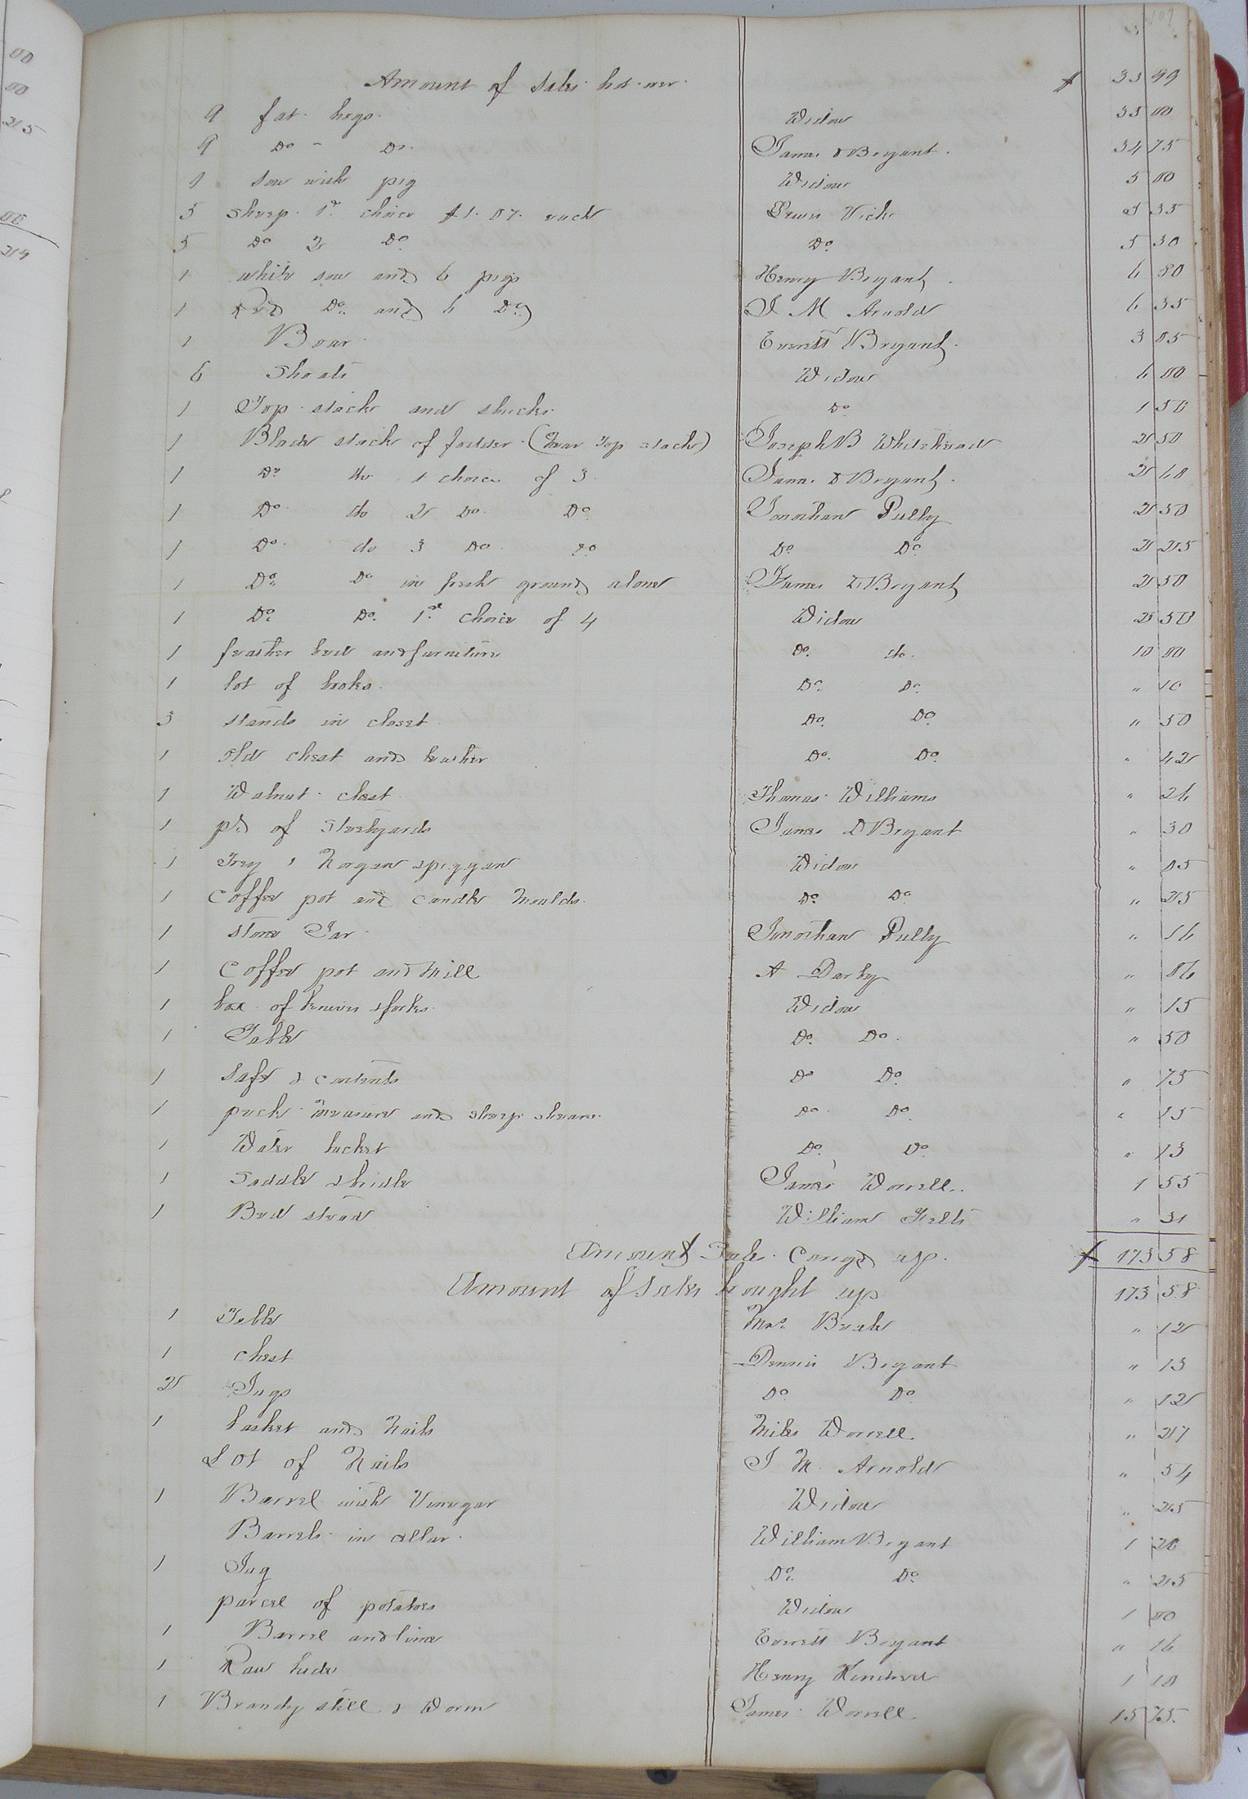 Amount of Sales bot. over $ 33 99
9 fat hogs Widow 33 00
9 Do Do James D Bryant 34 75
1 Sow with pig Widow 5 00
5 Sheep 1st choice $1.07 each Lewis Vick 5 35
5 Do 2 Do Do 5 30
1 white sow and 6 pigs Henry Bryant 6 80
1 Red Do and 6 Do J M Arnold 6 35
1 Boar Everett Bryant 3 05
6 Shoats Widow 6 00
1 Top stack and shucks Do 1 50
1 Blade stack of fodder (Near Top stack) Joseph B Whitehead 2 50
1 Do do 1 choice of 3 James D Bryant 2 60
1 Do do 2 Do Do Jonothan Pully 2 50
1 Do do 3 Do Do Do Do 2 25
1 Do Do in fresh ground alone James D Bryant 2 50
1 Do Do 1st choice of 4 Widow 2 50
1 feather bed and furniture Do do 10 00
1 lot of books Do Do " 10
3 stands in closet Do Do " 50
1 Old chest and basket Do Do " 42
1 Walnut chest Thomas Williams " 26
1 pr of Steelyards James D Bryant " 30
1 Trey 1 & piggin Widow " 05
1 Coffee pot and candle moulds Do Do " 25
1 Stone Jar Jonothan Pully " 16
1 Coffee pot and Mill A Darby " 06
1 box of knives & forks Widow " 15
1 Table Do Do " 50
1 Safe & contents Do Do " 75
1 peck measure and sheep shears Do Do " 15
1 Water bucket Do Do " 13
1 Saddle & bridle James Worrell 1 55
1 Bed stead William Felts " 31
Amount Sales Carry'd up $ 173 58
Amount of Sales bought up 173 58
1 Table Mos Beale " 12
1 chest Dennis Bryant " 13
2 Jugs Do Do " 12
1 basket and Nails Miles Worrell " 27
Lot of Nails J M Arnold " 54
1 Barrel with Vinegar Widow " 25
Barrels in cellar William Bryant 1 20
1 Jug Do Do " 25
parcel of potatoes Widow 1 00
1 Barrel and lime Everett Bryant " 16
1 Raw hide Henry 1 10
1 Brandy still & Worm James Worrell 15 75